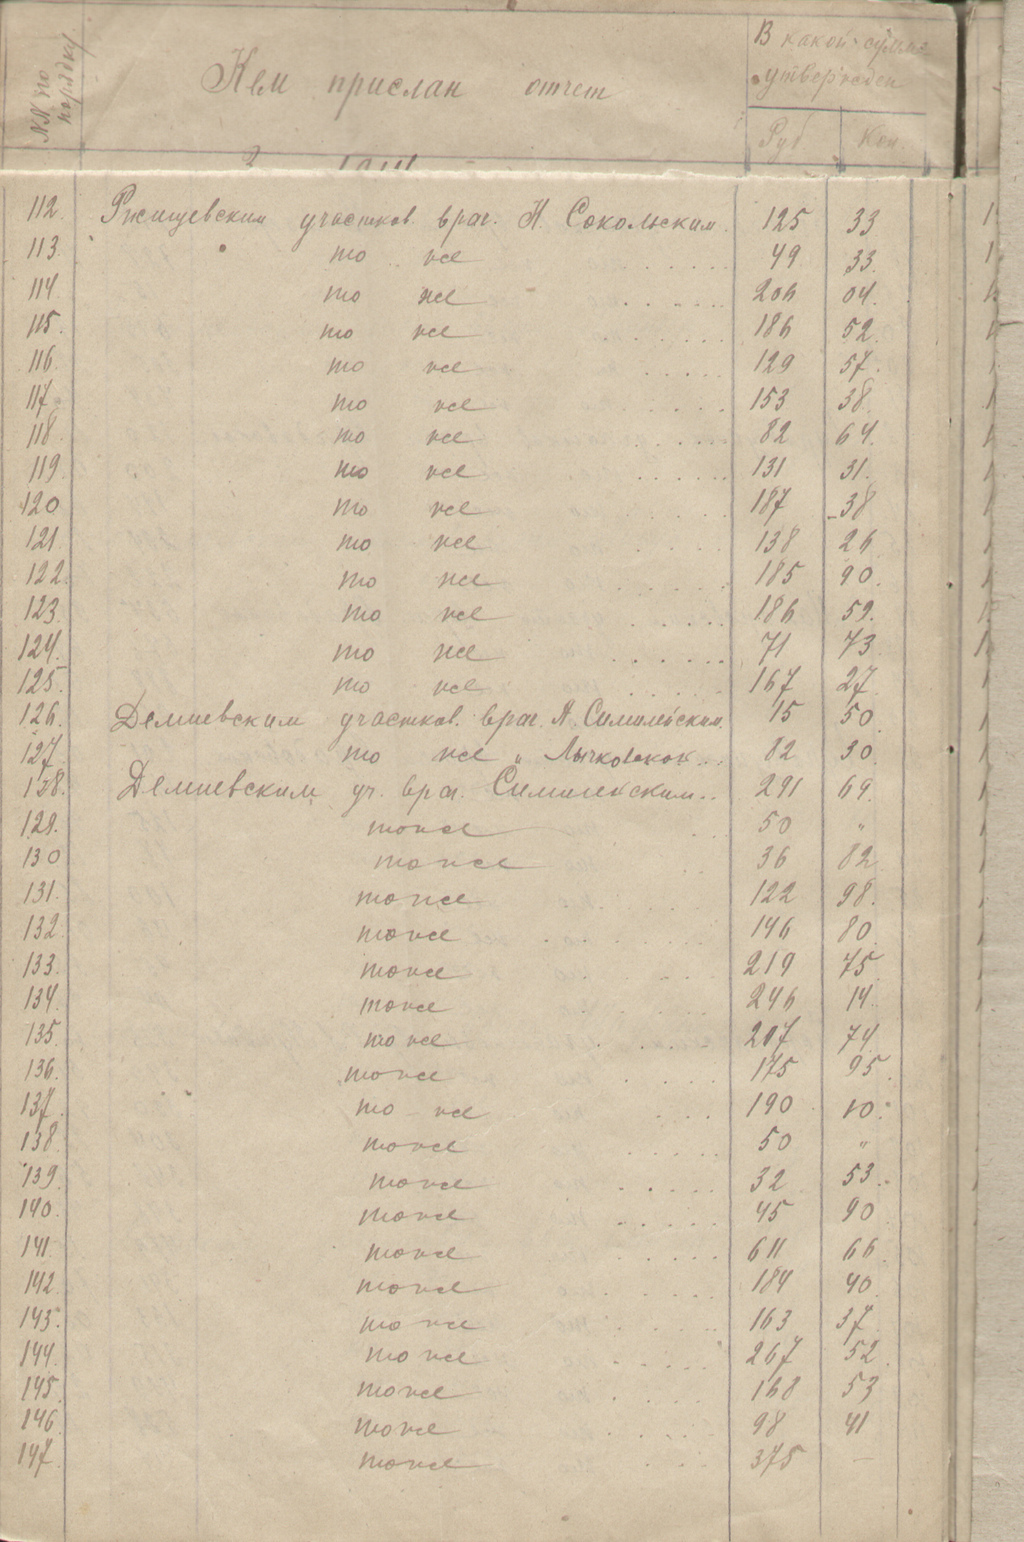 NN по порядку.
Кем прислан отчет
В какой сумме утвержден
Руб. Коп.
112. Ржищевским участков. врач. Н. Сокольским. 125 33
113 то же 49 33.
114 то же 206 04.
115. то же 186 52.
116. то же 129 57.
117. то же 153 38.
118. то же 82 64.
119. то же 131 31.
120 то же 187 38
121. то же 138 26
122. то же 185 90.
123. то же 186 59.
124. то же 71 73
125. то же 167 27
126. Демиевским участков. врач. А. 15 50
127. то же „ 82 30.
138. Демиевским уч. врач. 291 69.
129. тоже 50 „
130 тоже 36 82
131. тоже 122 98.
132. тоже 146 80.
133. тоже 219 75
134. тоже 246 14.
135. то же 207 74
136. тоже 175 95.
137. то же 190 10.
138. тоже 50 „
139. тоже 32 53.
140. тоже 45 90
141. тоже 611 66.
142. тоже 184 40.
143. то же 163 37.
144. то же 267 52.
145. тоже 168 53
146. тоже 98 41
147. тоже 375 —